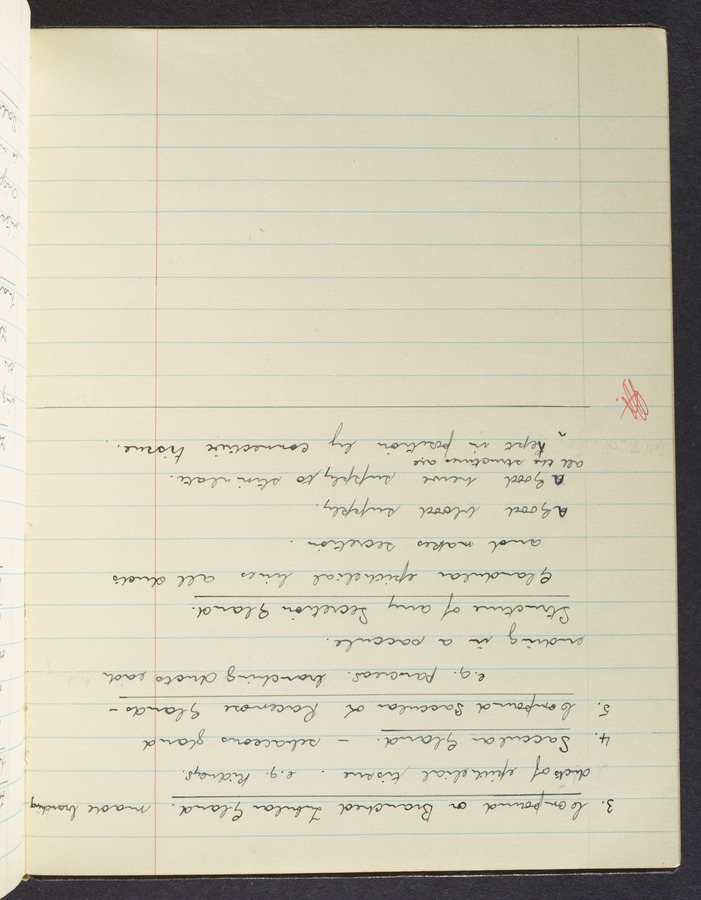 3. Compound or Branched Tubular Gland. made branching
ducts of epithelial tissue. e.g. Kidneys.
4. Saccular Gland. – sebaceous gland
5. Compound Saccular or Racemose Glands –
e.g. Pancreas. branching ducts each
ending in a saccule.
Structure of any Secretion Gland.
Glandular epithelial lines all ducts
and makes secretion.
A Good blood supply.
A Good nerve supply, to stimulate.
all the structures are
^ kept in position by connective tissue.